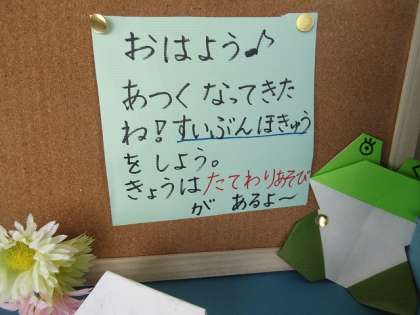 おはよう♪
あつくなってきた
ね!すいぶんほきゅう
をしよう。
きょうはたてわりあそび
が あるよ〜